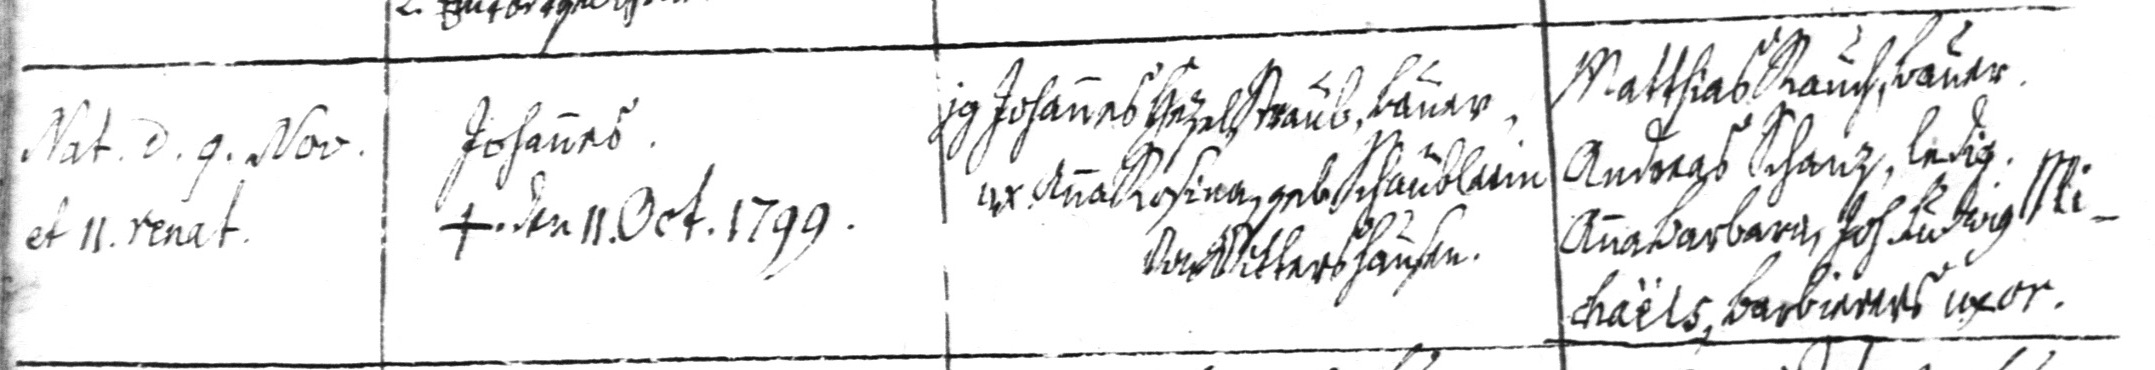 Nat. d. 9. Nov.
et 11. renat.
Johan̅es.
†. den 11. Oct. 1799.
jg Johan̅es Hezel, Straub, bauer,
ux. An̅a Rosina, geb. Schäublerin
von Wittershausen.
Matthias Rauch, bauer.
Andreas Schanz, ledig.
An̅a Barbara, Joh. Ludwig Mi-
chaëls, barbierers uxor.